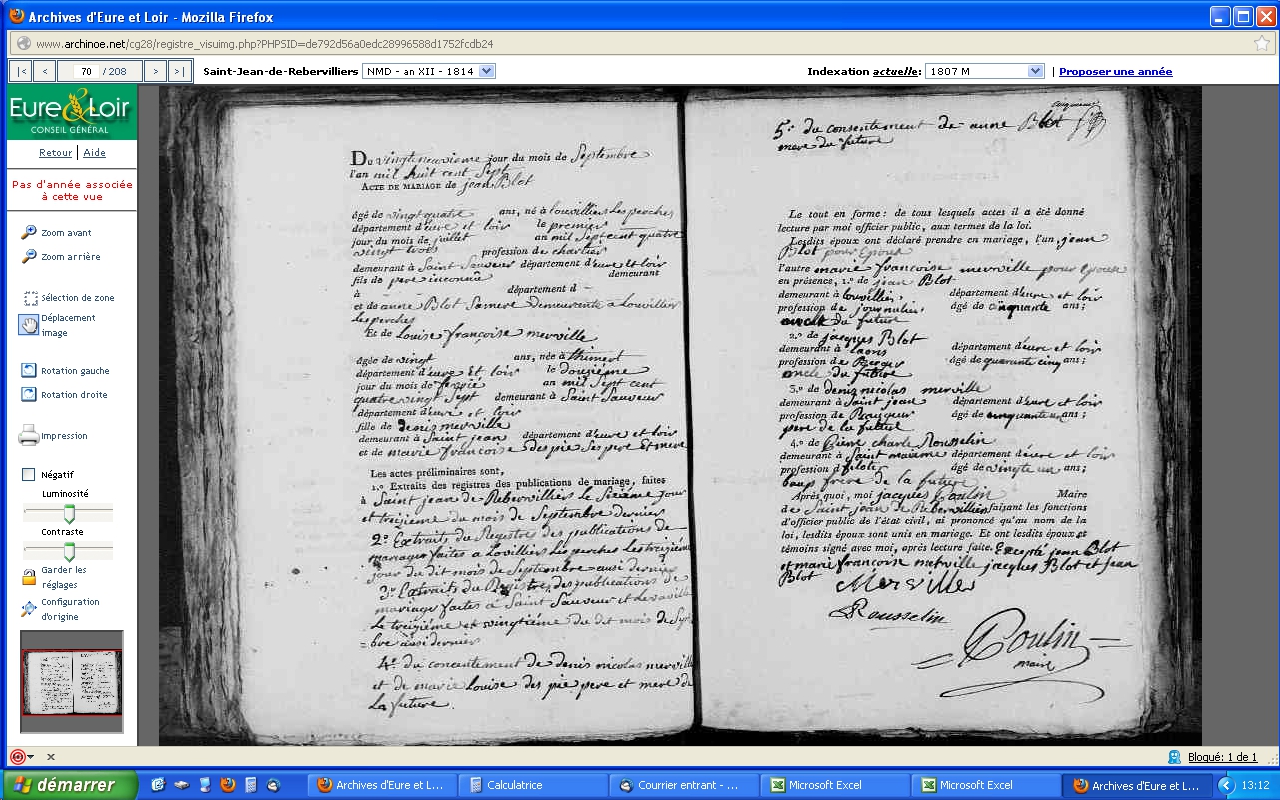 Archives d'Eure et Loir - Mozilla Firefox
www.archinoe.net/cg28/registre_visuimg.php?PHPSID=de792d56a0edc28996588d1752fcdb24
|< < 70 / 208 > >| Saint-Jean-de-Rebervilliers NMD - an XII - 1814 Indexation actuelle: 1807 M | Proposer une année
Eure & Loir
CONSEIL GÉNÉRAL
Retour | Aide
Pas d'année associée
à cette vue
Zoom avant
Zoom arrière
Sélection de zone
Déplacement
image
Rotation gauche
Rotation droite
Impression
Négatif
Luminosité
Contraste
Garder les
réglages
Configuration
d'origine
Du vingt neuvieme jour du mois de Septembre
l'an mil huit cent Sept
ACTE DE MARIAGE de jean Blot
âgé de vingt quatre ans, né à louvilliers les perches
département d'eure et loir le premier
jour du mois de juillet an mil Sept cent quatre
vingt trois profession de chartier
demeurant à Saint Sauveur département d'eure et loir
fils de pere inconnu demeurant
à département d
et de anne Blot Sa mere demeurente a Louvillier
les perches
Et de Louise francoise merville
âgée de vingt ans, née à thimert
département d'eure Et loir le douzième
jour du mois de an mil Sept cent
quatre vingt Sept demeurant à Saint Sauveur
département d'eure et loir
fille de denis merville
demeurant à Saint jean département d'eure et loir
et de marie francoise des pié Ses pere Et mere
Les actes préliminaires sont,
1.° Extraits des registres des publications de mariage, faites
à Saint jean de Rebervilliers le Sixième jour
et treizième du mois de Septembre dernier
2.° Extraits du Registre des publications de
mariage faites a Lovilliers les perches les treizième
jour du dit mois de Septembre aussi dernier
3.° Extraits du Registre des publications de
mariage faites à Saint Sauveur et
Le treizième et vingtième du dit mois de Sept
-bre aussi dernier
4.° du concentement de denis nicolas merville
et de marie Louise des pié pere et mere de
La future.
5.° du consentement de anne Blot
mere du future
Le tout en forme : de tous lesquels actes il a été donné
lecture par moi officier public, aux termes de la loi.
Lesdits époux ont déclaré prendre en mariage, l'un jean
Blot pour Epoux
l'autre marie francoise merville pour epouse
en présence, 1.° de jean Blot
demeurant à louvillies, département d'eure et loir
profession de journalier, âgé de cinquante ans;
oncle du future
2.° de jacques Blot
demeurant à laons département d'eure et loir
profession de Berger âgé de quarente cinq ans;
oncle du future
3.° de denis nicolas merville
demeurant à Saint jean département d'eure et loir
profession de âgé de cinquante un ans;
pere de la future
4.° de Pierre charle Rousselin
demeurant à Saint maixme département d'eure et loir
profession d âgé de vingte un ans;
baus frere de la future
Après quoi, moi jacques Poulin Maire
de Saint jean de Rebervilliers faisant les fonctions
d'officier public de l'état civil, ai prononcé qu'au nom de la
loi, lesdits époux sont unis en mariage. Et ont lesdits époux et
témoins signé avec moi, après lecture faite. Excepte jean Blot
et marie francoise merville jacques Blot et jean
Blot
Merville
Rousselin
Poulin
maire
Bloqué: 1 de 1
démarrer Archives d'Eure et L... Calculatrice Courrier entrant - ... Microsoft Excel Microsoft Excel Archives d'Eure et Lo... 13:12